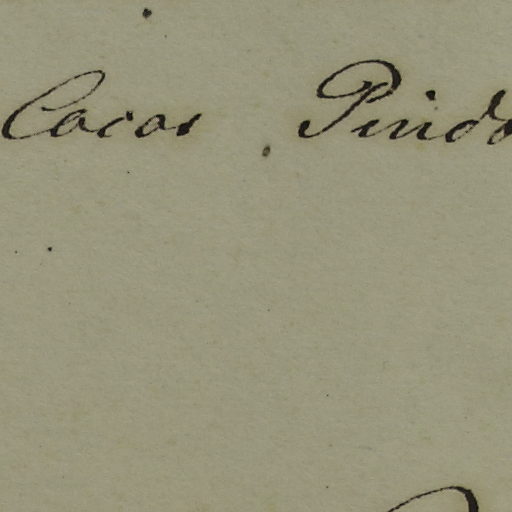 Cocos Pindo